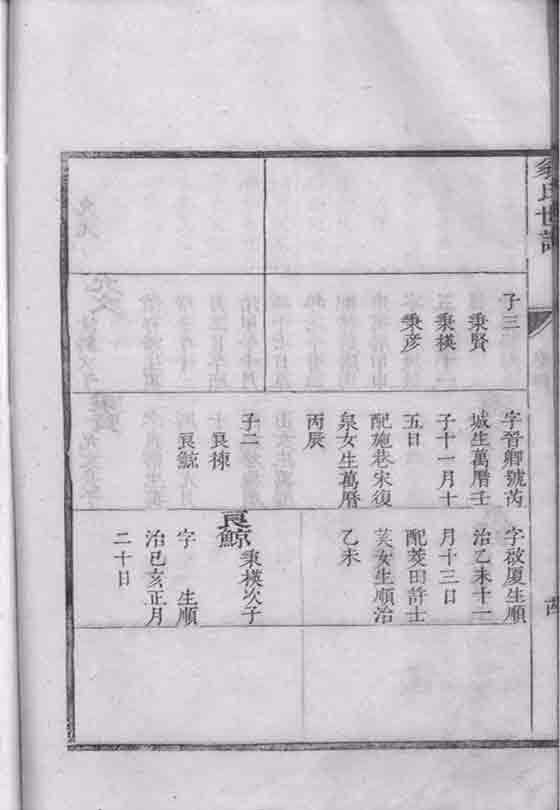 氏世譜
子三
秉賢
秉楧
秉彦
字晉卿號芮
城生萬曆壬
子十一月十
五日
配施巷宋復
泉女生萬曆
丙辰
子二
良棟
良鯨
字啟厦生順
治乙未十一
月十三日
配菱田許士
英女生順治
乙未
良鯨
秉楧次子
字 生順
治已亥正月
二十日